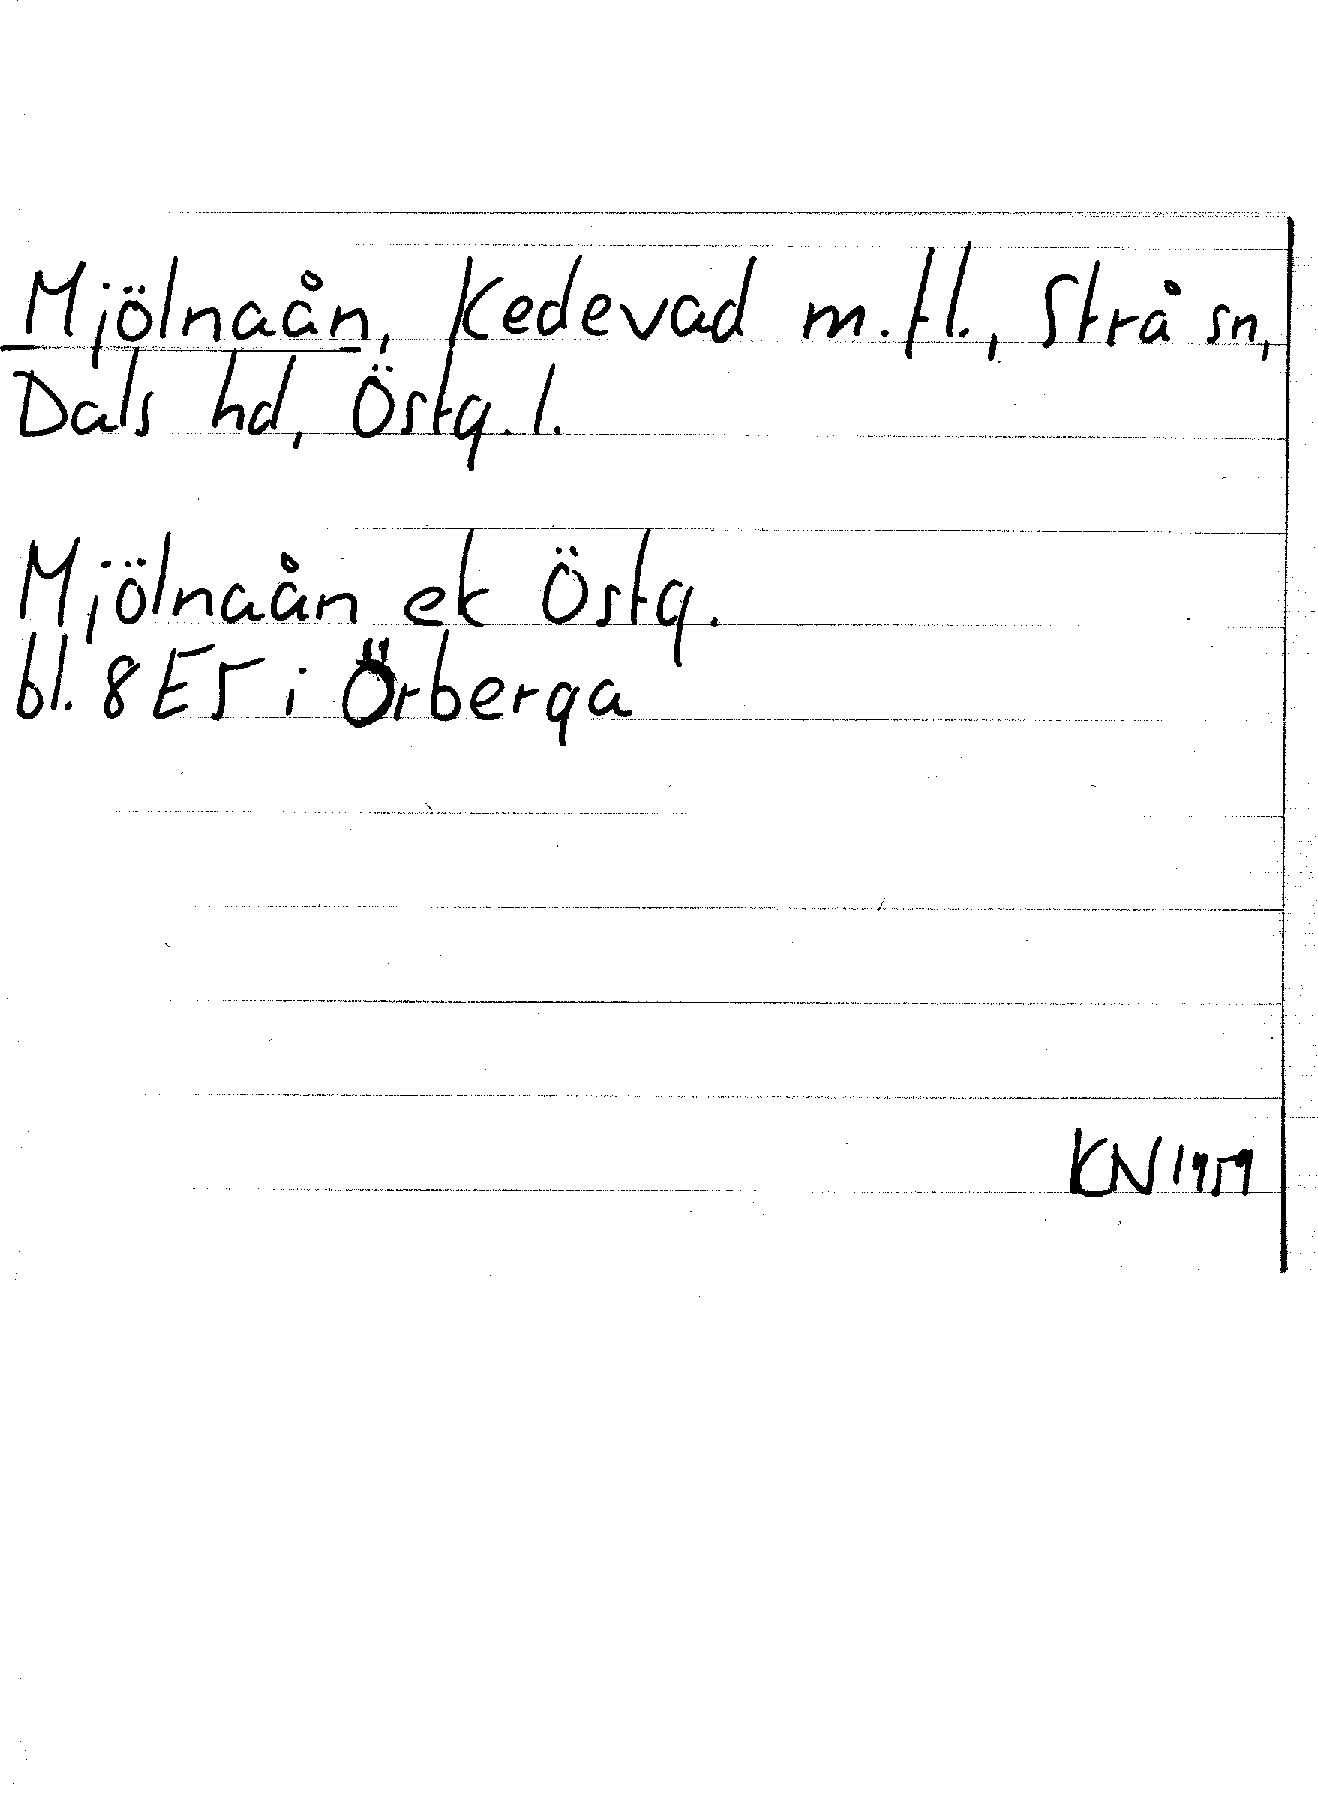 Mjölnaån, Kedevad m.fl., Strå sn,
Dals hd, Östg. l.
Mjölnaån ek Östg.
bl. 8 E5 i Örberga
KN 1959